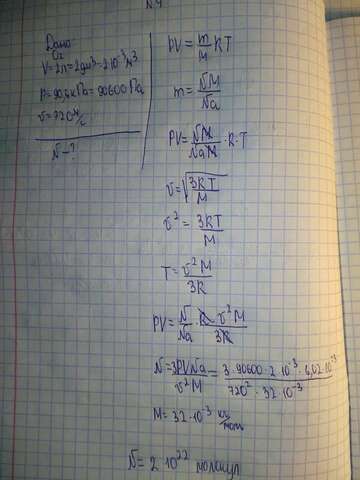 N4
Дано:
O₂
V=2л=2дм³=2·10⁻³м³
P=90,6кПа=90600Па
v=720м/с
N-?
PV=m/M RT
m=NM/Na
PV=NM/NaM·R·T
v=√3RT/M
v²=3RT/M
T=v²M/3R
PV=N/Na·R·v²M/3R
N=3PVNa/v²M=3·90600·2·10⁻³·6,02·10²³/720²·32·10⁻³
M=32·10⁻³ кг/моль
N=2·10²² молекул